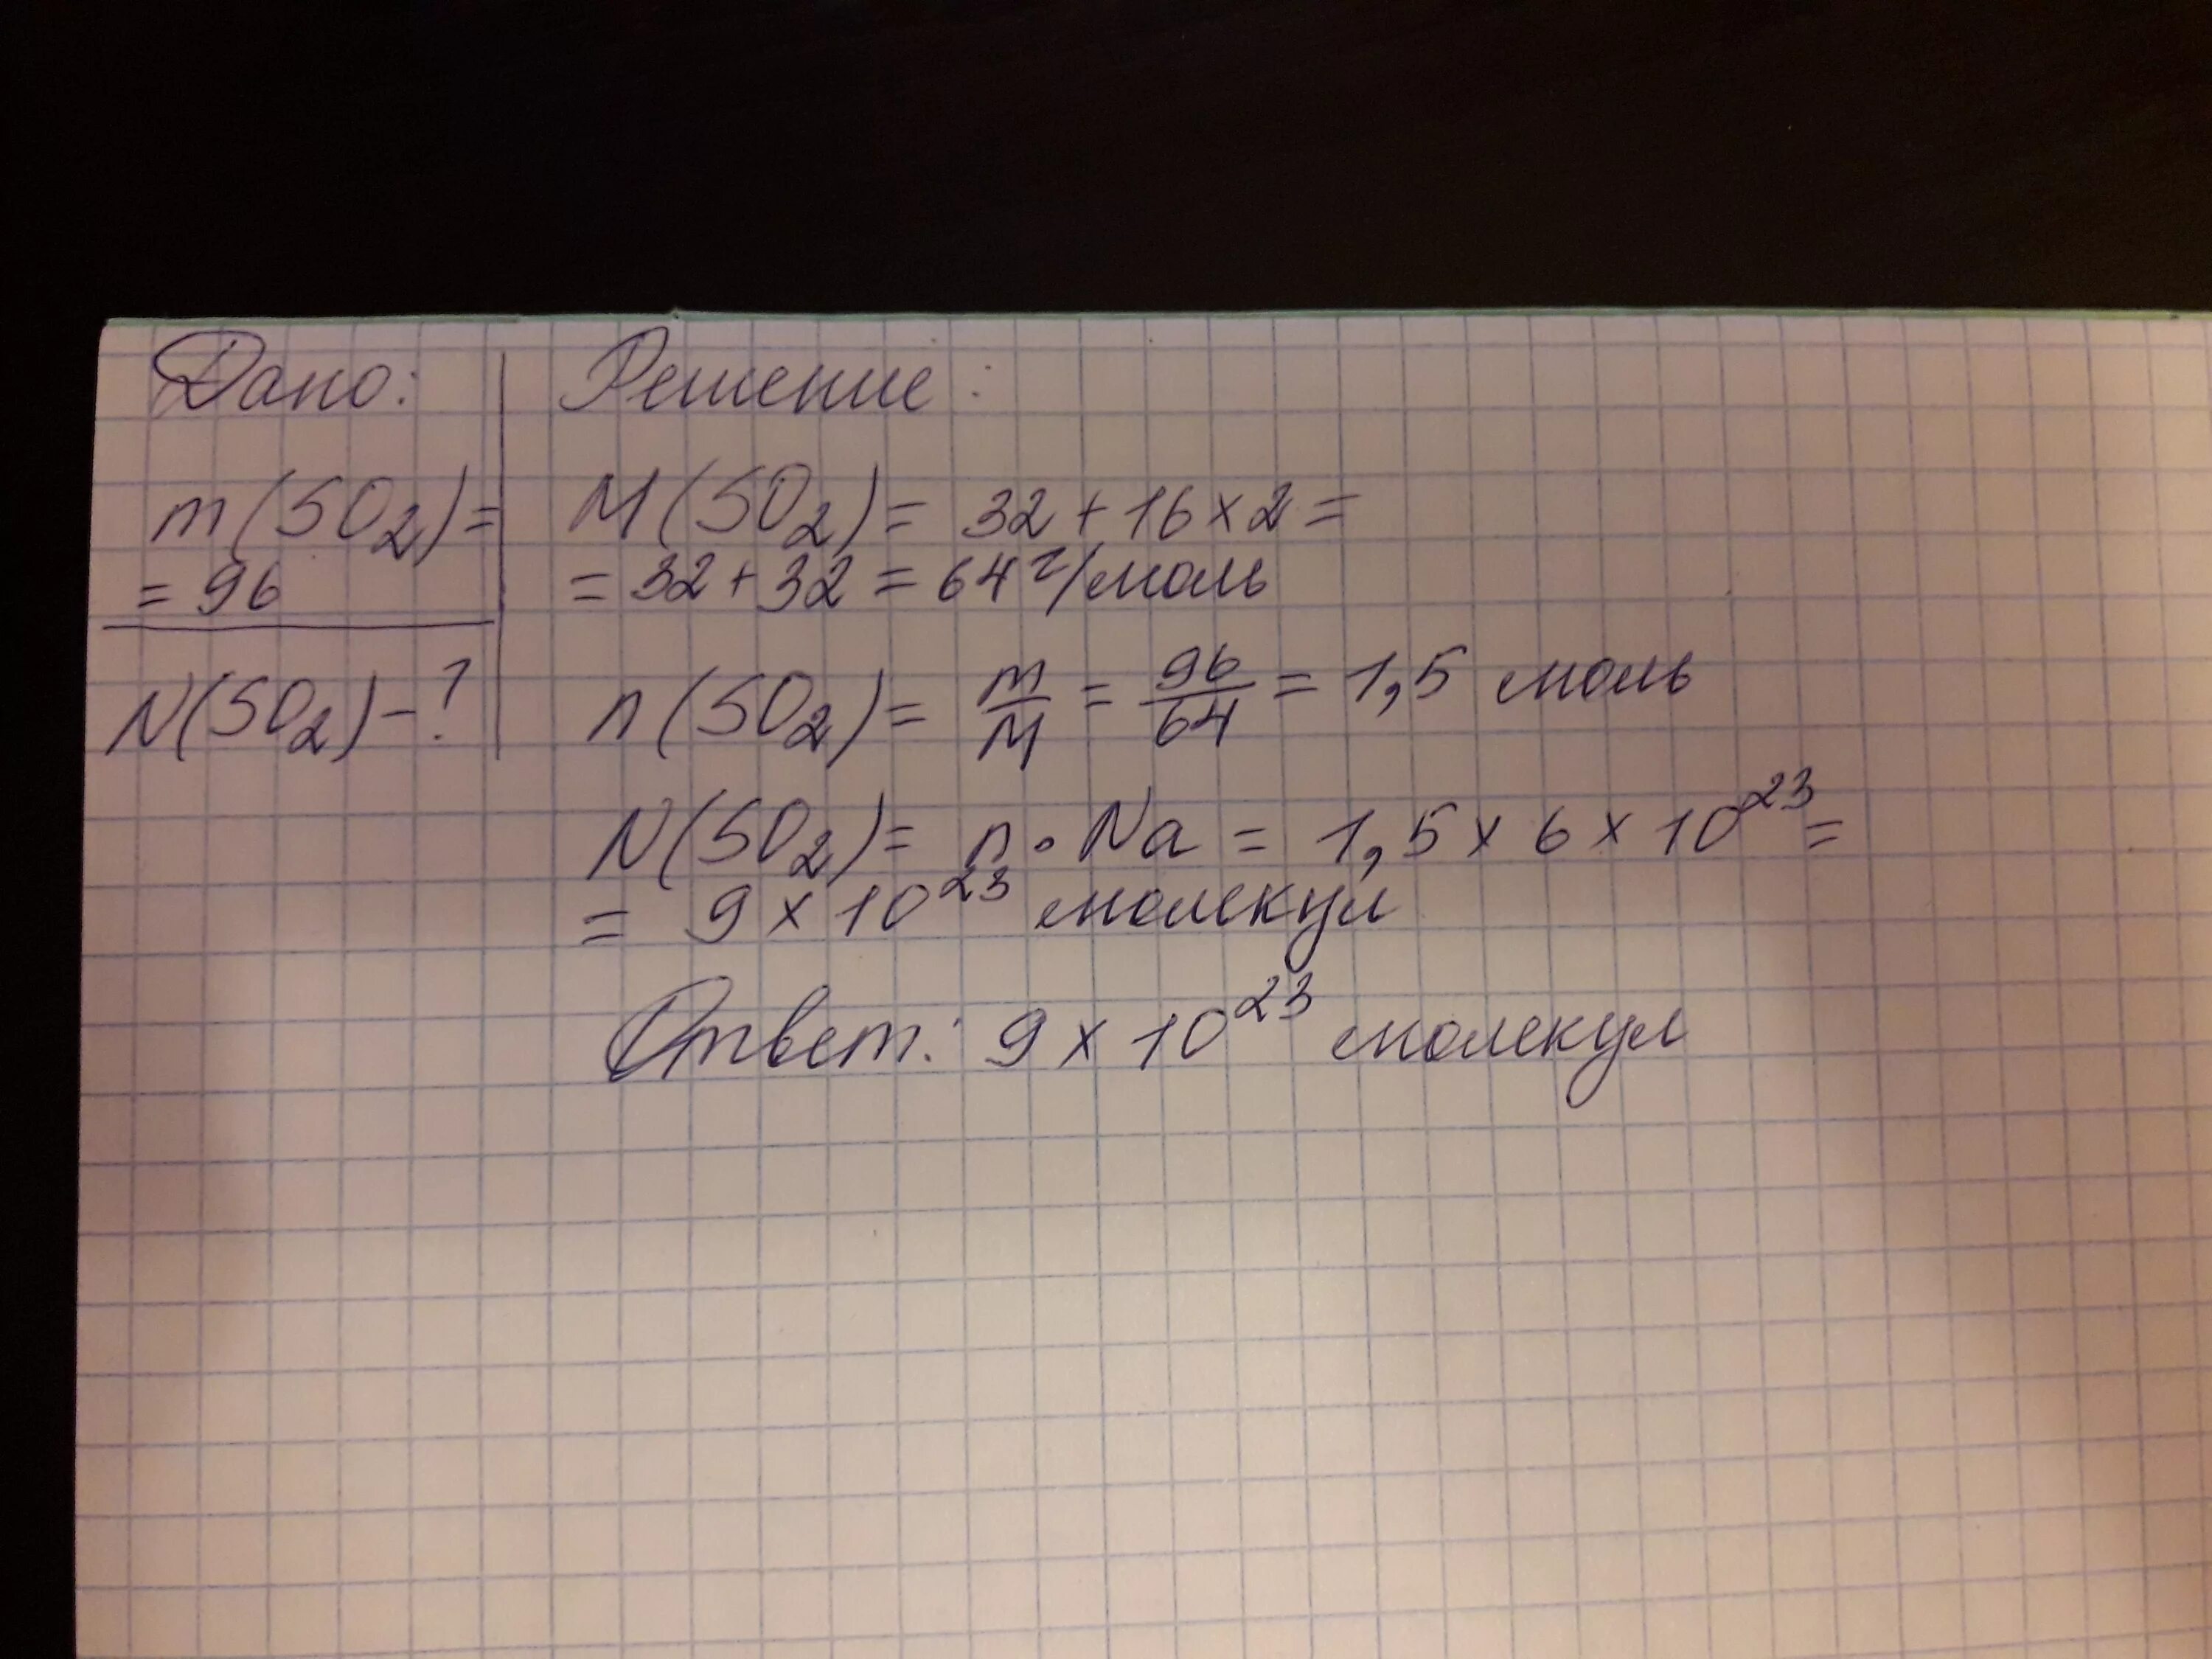 Дано:
m(SO₂)=
= 96
N(SO₂) – ?
Решение:
M(SO₂) = 32 + 16 × 2 =
= 32 + 32 = 64 г/моль
n(SO₂) = m/M = 96/64 = 1,5 моль
N(SO₂) = n · Na = 1,5 × 6 × 10²³ =
= 9 × 10²³ молекул
Ответ: 9 × 10²³ молекул